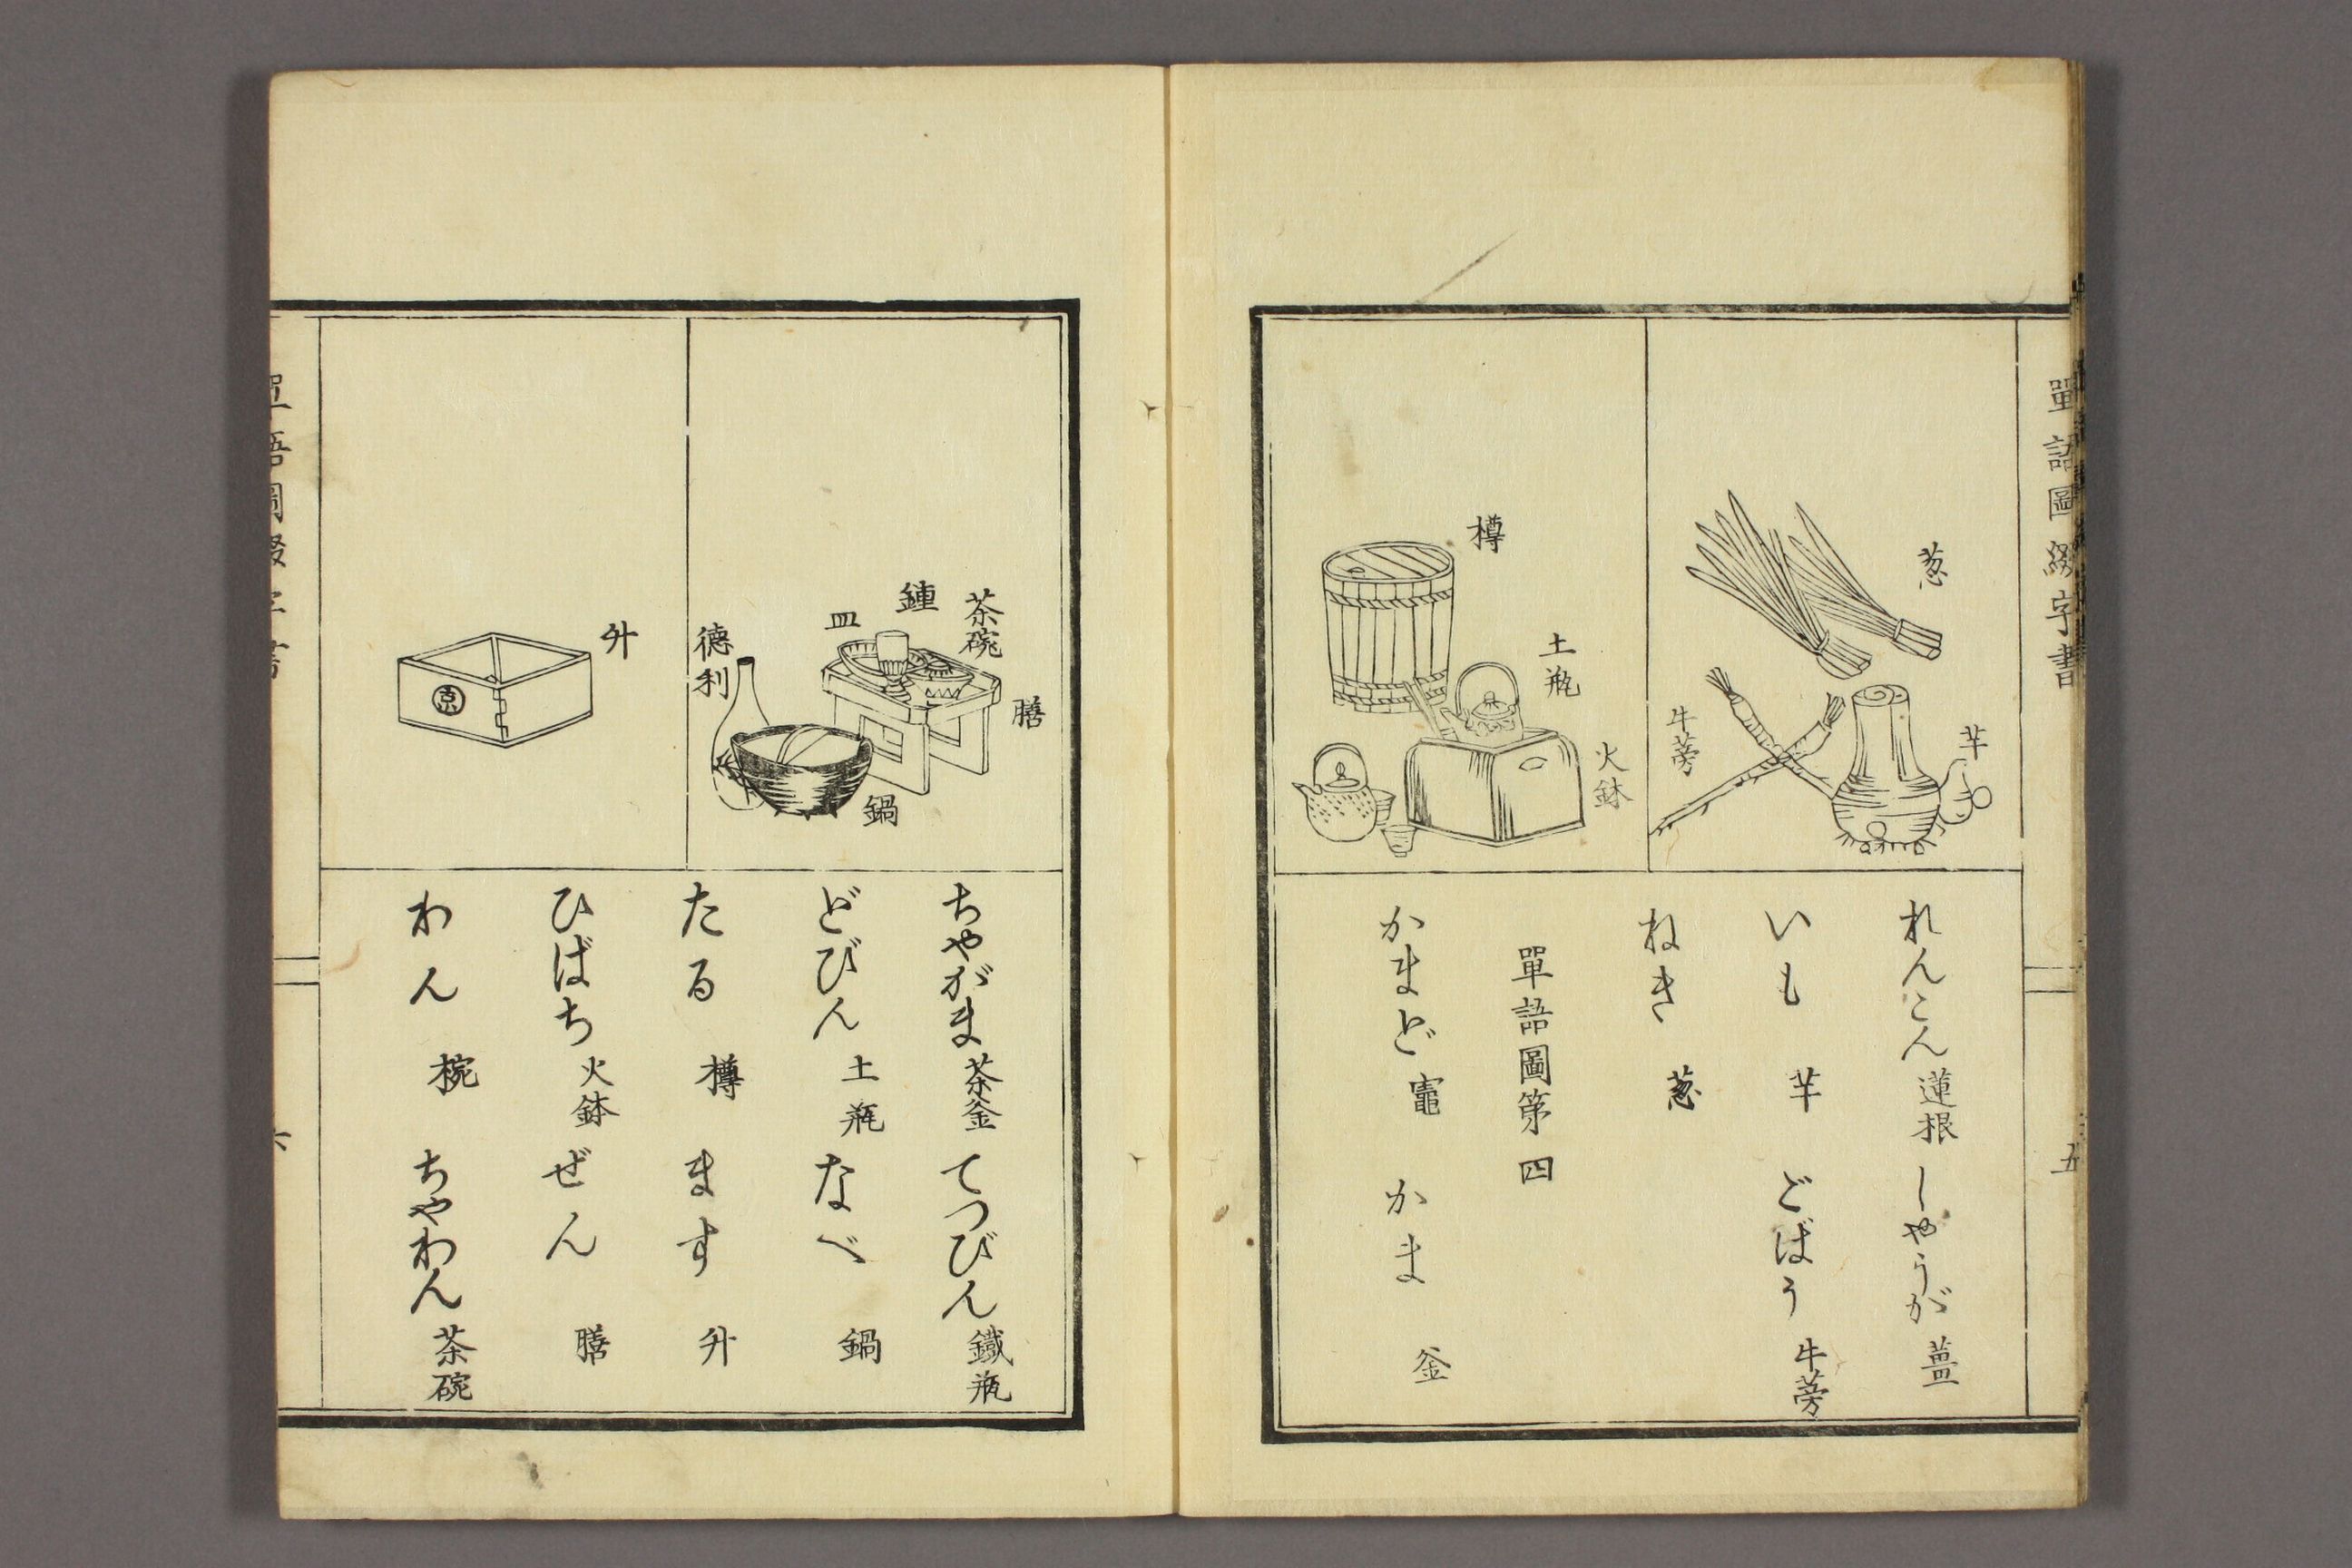 單語圖綴字書
五
葱
芋
牛蒡
樽
土瓶
火鉢
れんこん 蓮根 しやうが 薑
いも 芋 ごばう 牛蒡
ねき 葱
單語圖第四
かまど 竈 かま 釜
茶碗
膳
皿
德利
鍋
升
京
ちやがま 茶釜 てつびん 鐵瓶
どびん 土瓶 なべ 鍋
たる 樽 ます 升
ひばち 火鉢 ぜん 膳
わん 椀 ちやわん 茶碗